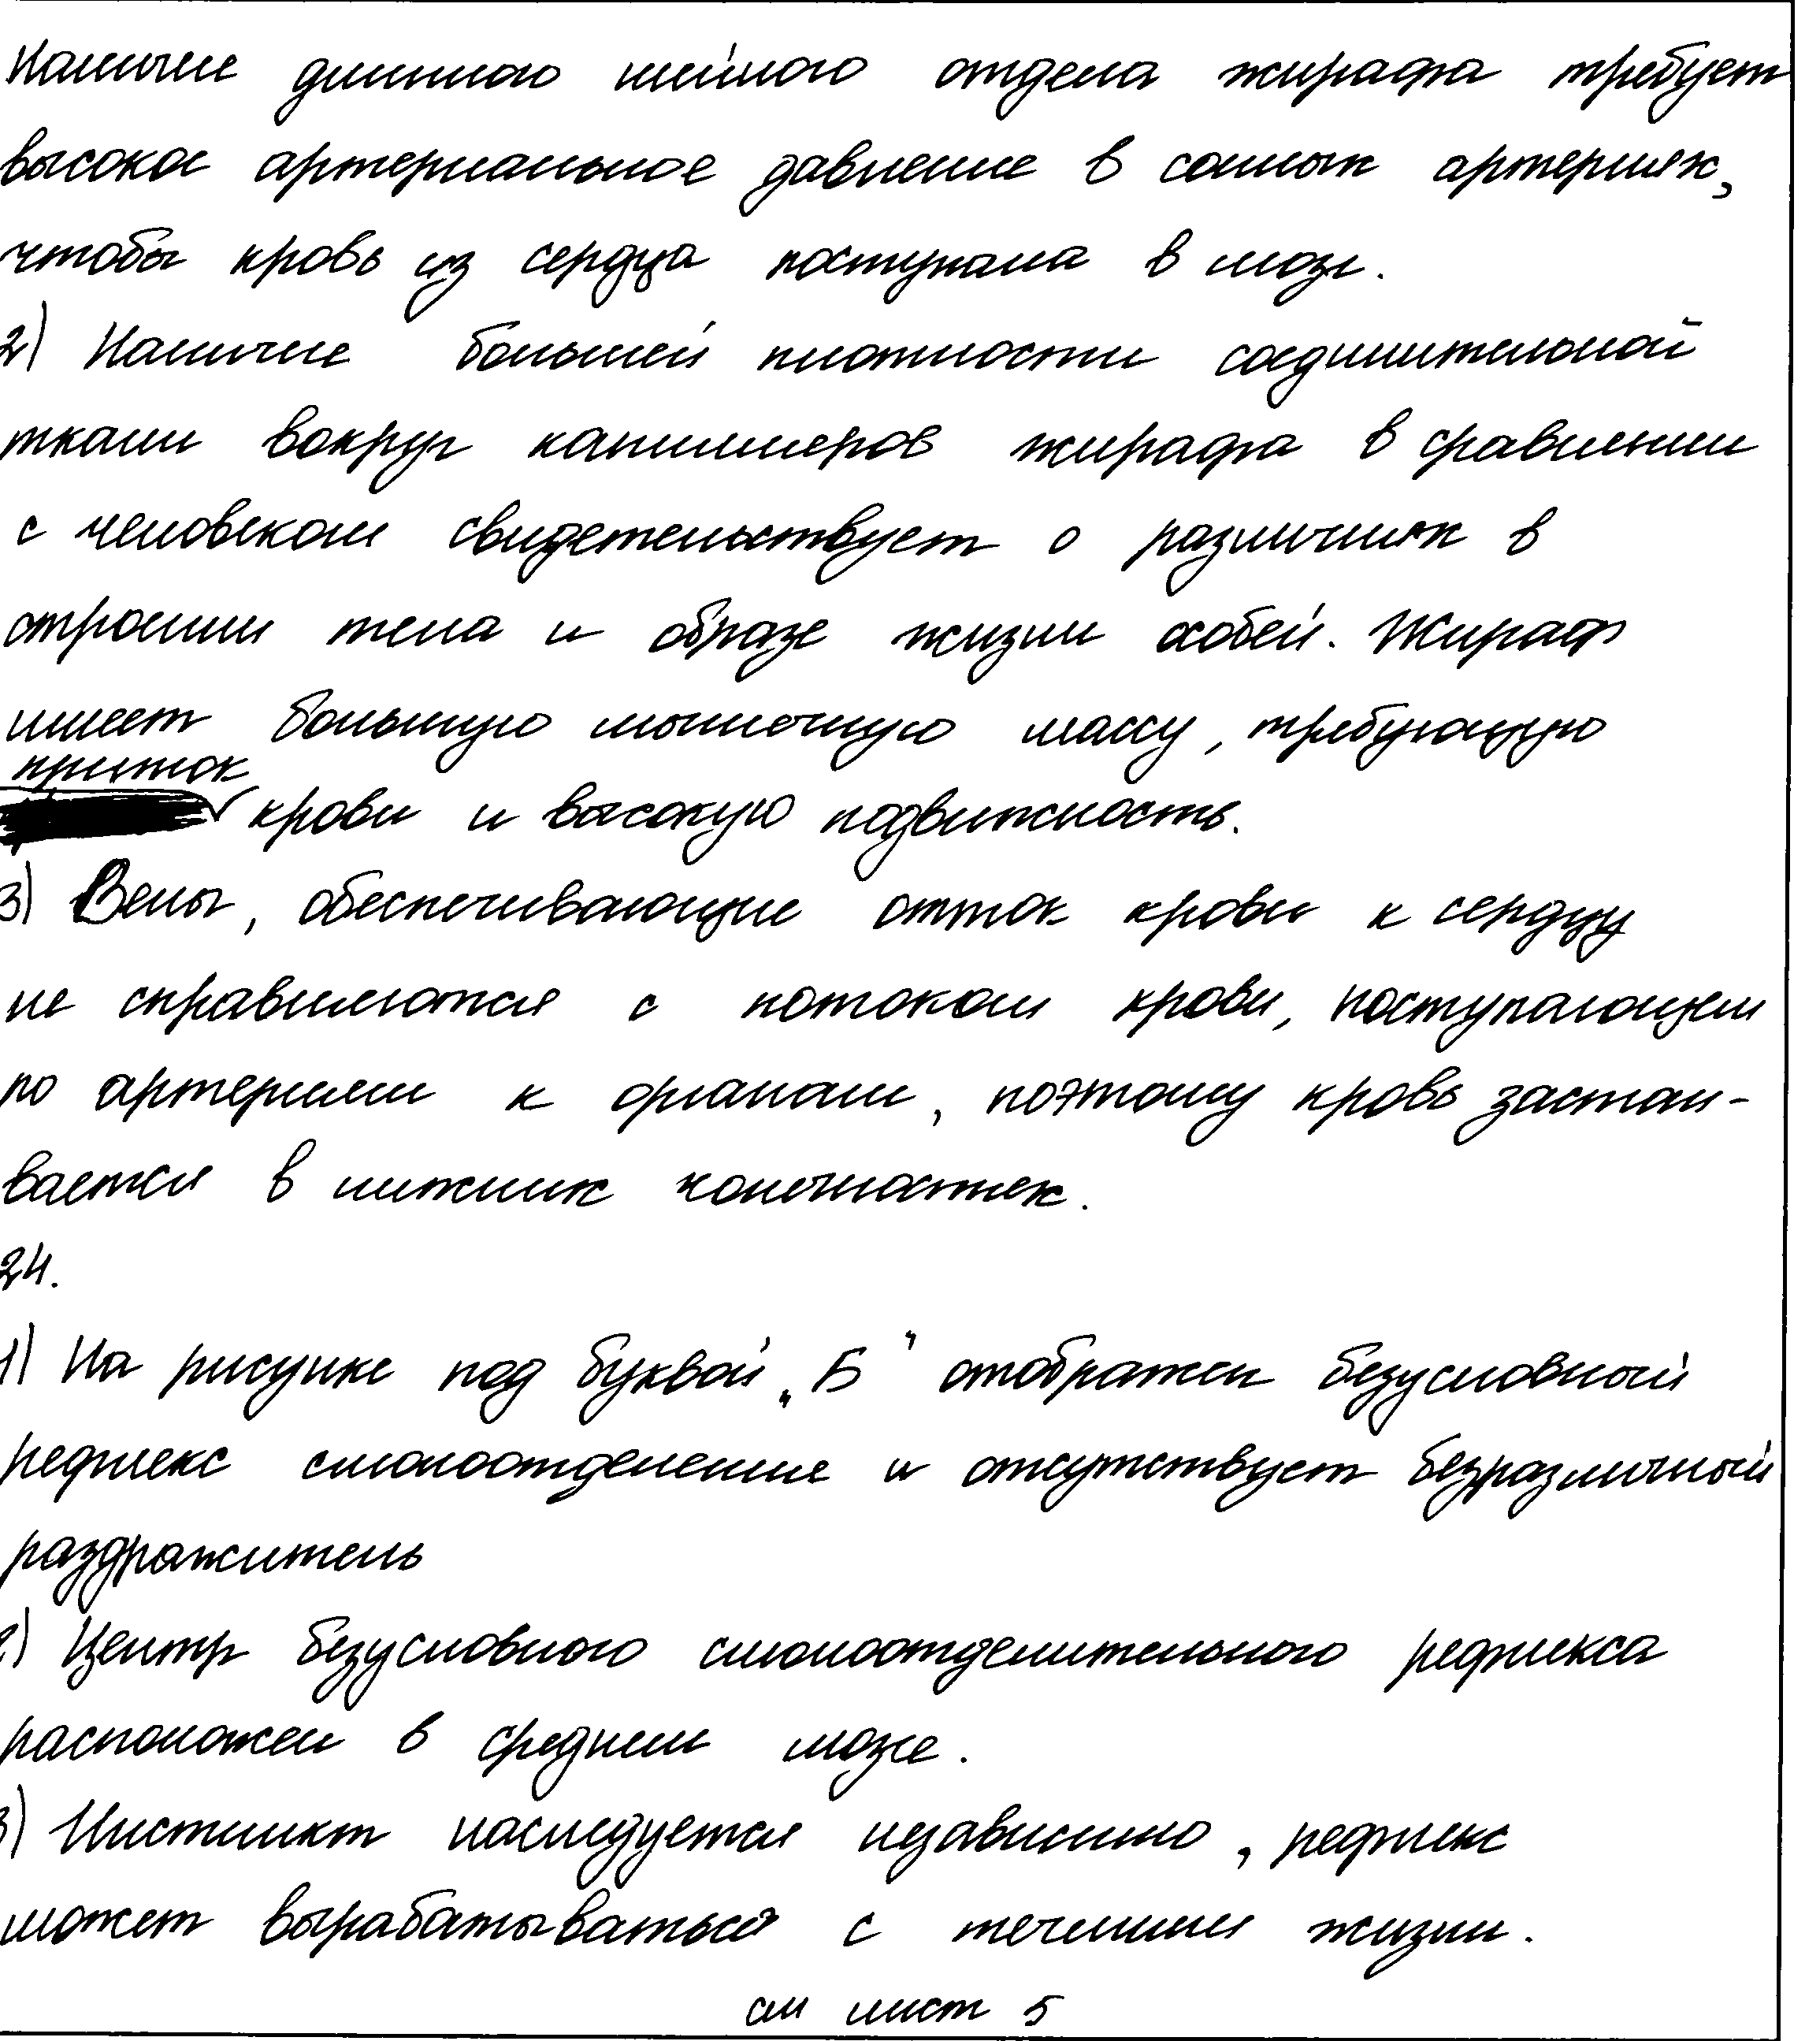 Наличие длинного шейного отдела жирафа требует
высокое артериальное давление в сонных артериях,
чтобы кровь из сердца поступала в мозг.
2) Наличие большей плотности соединительной
ткани вокруг капилляров жирафа в сравнении
с человеком свидетельствует о различиях в
строении тела и образе жизни особей. Жираф
имеет большую мышечную массу, требующую
приток
крови и высокую подвижность.
3) Вены, обеспечивающие отток крови к сердцу
не справляются с потоком крови, поступающем
по артериям к органам, поэтому кровь застаи-
вается в нижних конечностях.
24.
1) На рисунке под буквой „Б" отображен безусловный
рефлекс слюноотделение и отсутствует безразличный
раздражитель
2) Центр безусловного слюноотделительного рефлекса
расположен в среднем мозге.
3) Инстинкт наследуется независимо, рефлекс
может вырабатываться с течением жизни.
см лист 5